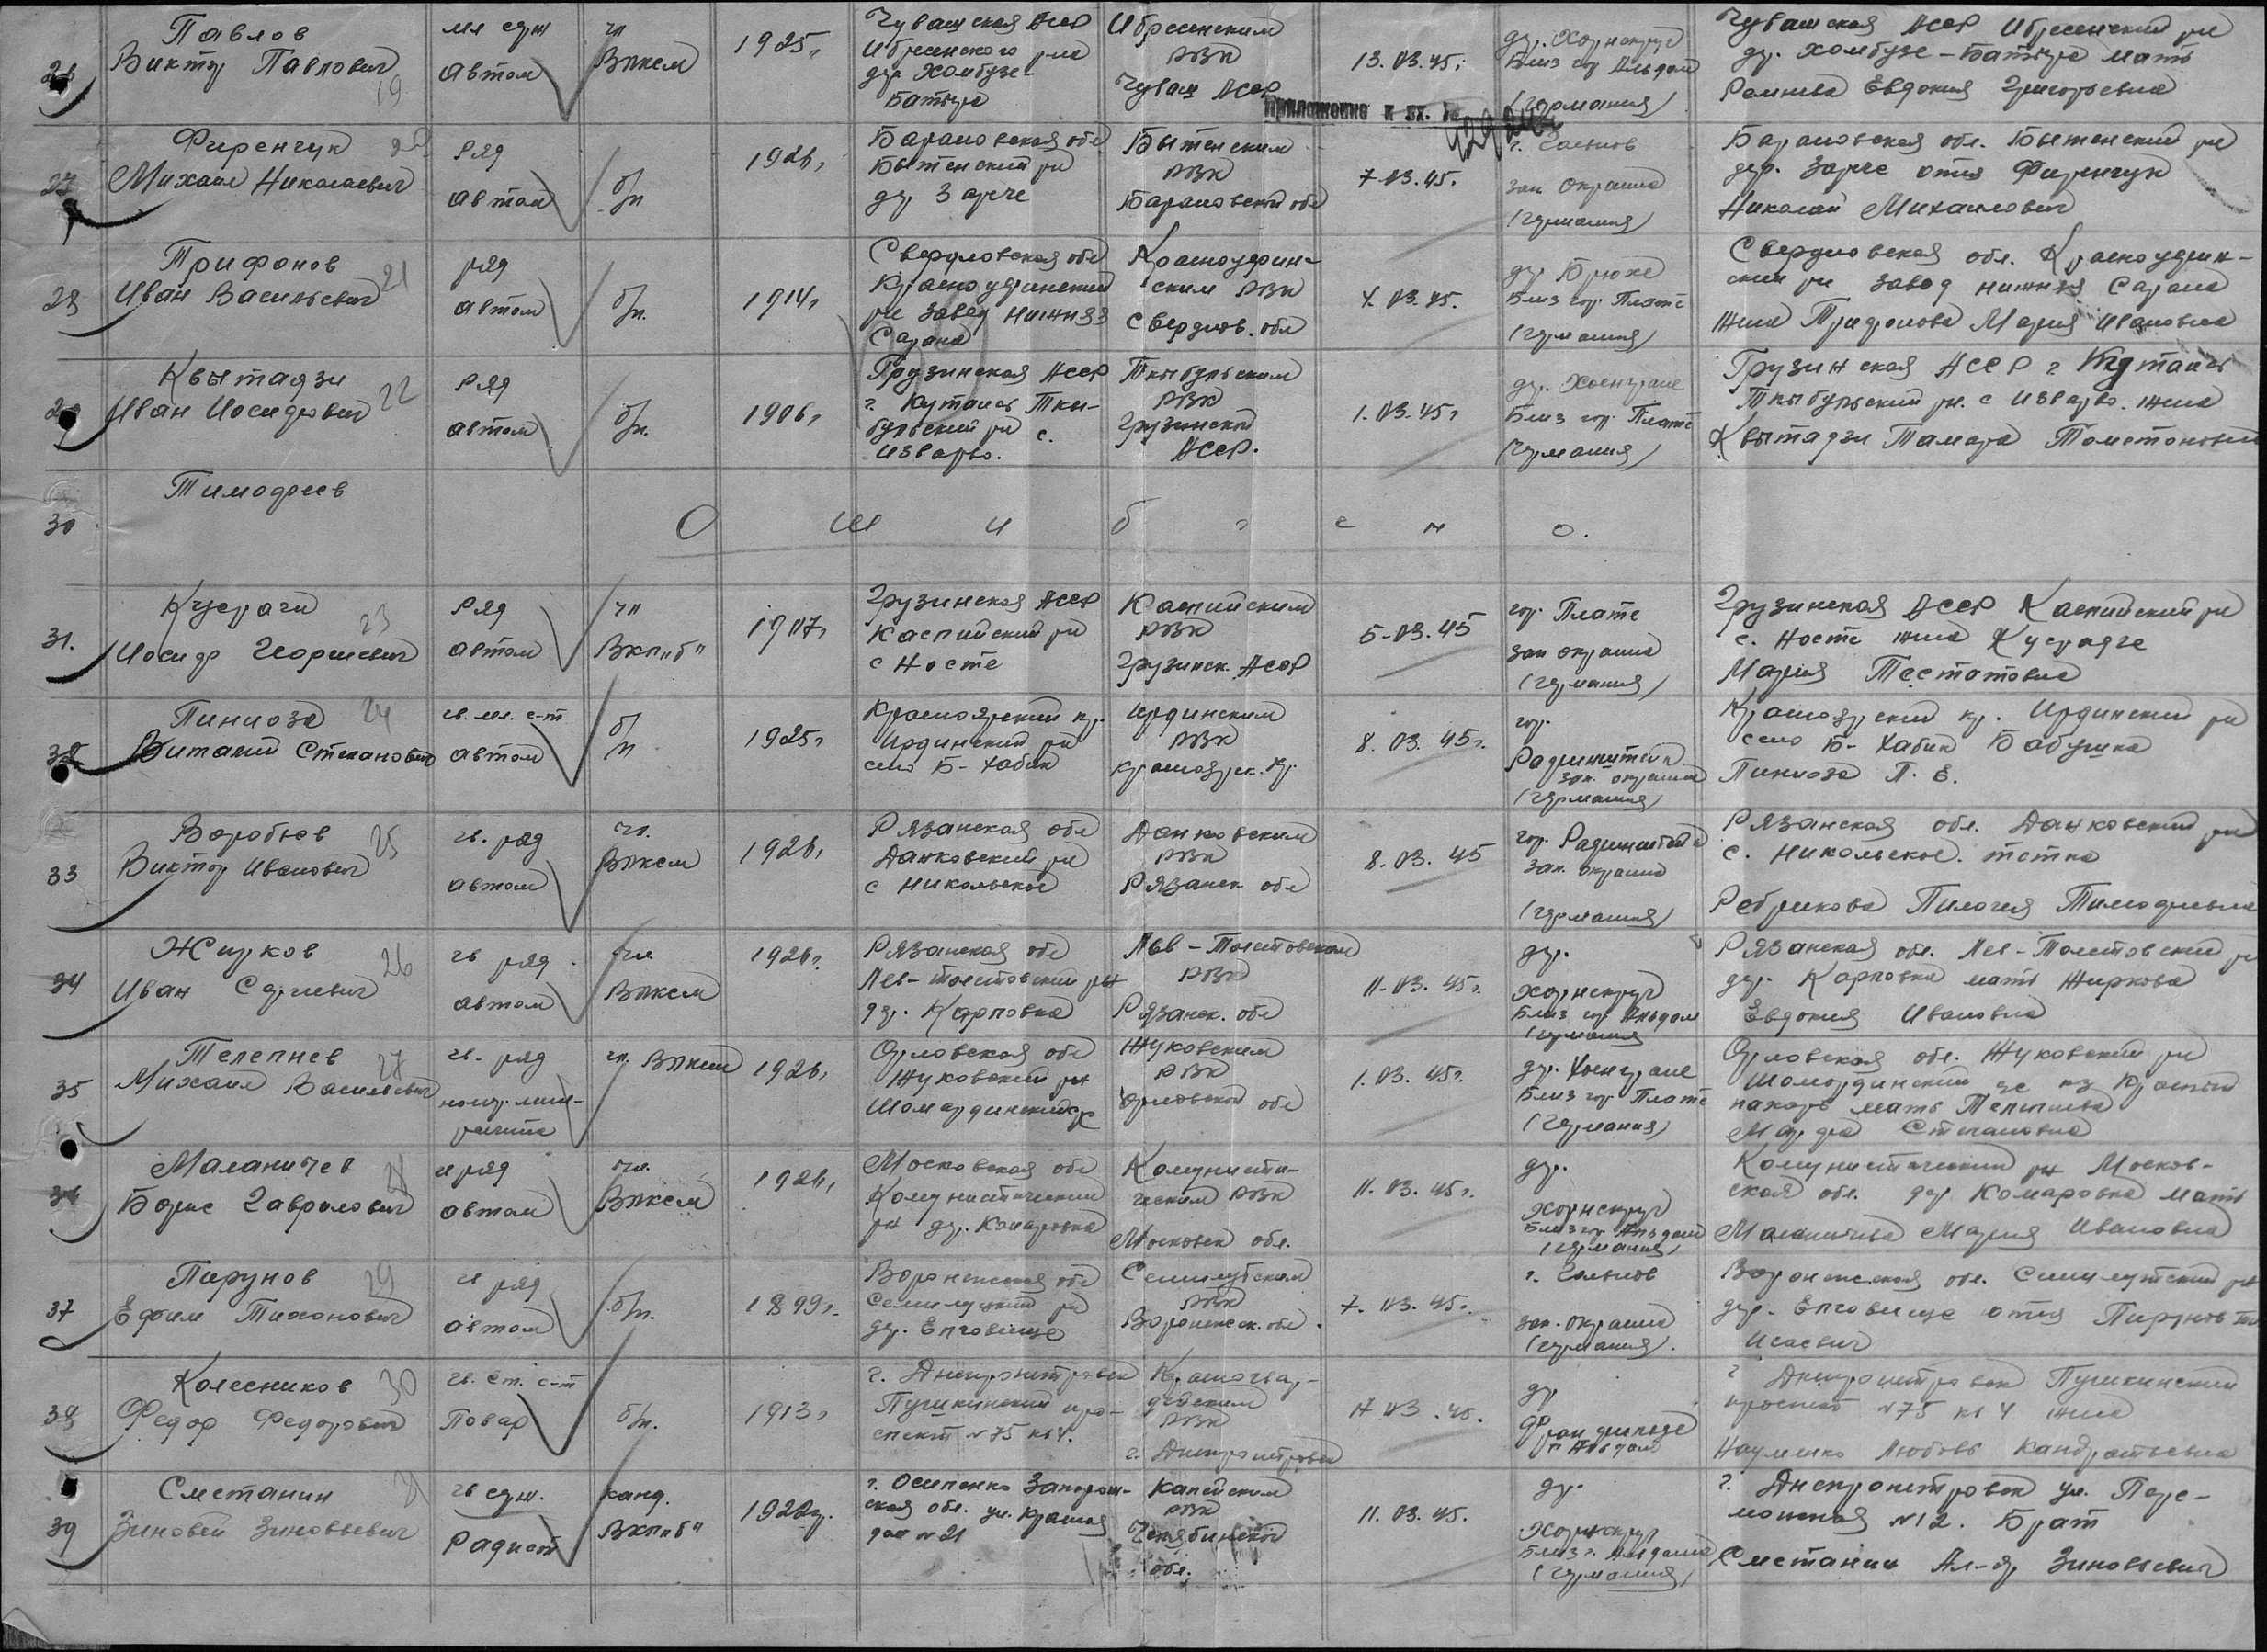 26
Павлов
Виктор Павлович
19
мл серж
автом
чл
Влксм
1925г
Чувашская АССР
Ибресинского р-на
дер. Хомбузе-
Батыре
Ибресинским
РВК
Чуваш АССР
13.03.45г
дер. Хорнскруг
Близ гор Альдам
(Германия)
Чувашская АССР Ибресенский рн
др. Хомбузе - Батыре мать
Евдокия Григорьевна
Приложение к вх. №
27
Фиренчук
Михаил Николаевич
ряд
автом
б/п
1926г
Барановская обл
Бытенский рн
др Заречe
Бытенским
РВК
Барановской обл
7.03.45.
зап окраина
(Германия)
Барановская обл. Бытенский рн
дер. Заречe отец Фиренчук
Николай Михаилович
28
Трифонов
Иван Васильевич
21
ряд
автом
б/п.
1914г
Свердловская обл
Красноуфимский
рн завод Нижняя
Сарана
Красноуфим-
ским РВК
Свердлов. обл
4.03.45.
др Брюке
Близ гор. Плате
(Германия)
Свердловская обл. Красноуфим-
ский рн завод нижняя Сарана
жена Трифонова Мария Ивановна
29
Квытадзи
Иван Иосифович
22
ряд
автом
б/п.
1906г
Грузинская АССР
г. Кутаись Тки-
бульский рн с.
Изварво.
Ткыбульским
РВК
Грузинской
АССР.
1.03.45г
др. Хоенграпе
Близ гор Плате
(Германия)
Грузинская АССР г Кутаись
Ткыбульский рн. с Изварво. жена
Квытадзи Тамара
30
Тимофеев
О ш и б о ч н о.
31.
Иосиф Георгиевич
23
ряд
автом
чл
Вкп„б"
1907г
Грузинская АССР
Каспийский рн
с Носте
Каспийским
РВК
Грузинск. АССР
5-03.45
гор. Плате
зап окраина
(Германия)
Грузинская АССР Каспийский рн
с. Носте жена
Мария
32
Пиниоза
Виталий Степанович
24
гв. мл. с-т
автом
б/п
1925г
Красноярский кр.
Ирдинский рн
село Б- Хабик
Ирдинским
РВК
Красноярск. кр.
8.03.45г.
гор.
зап. окраина
(Германия)
Красноярский кр. Ирдинский рн
село Б- Хабик Бабушка
Пиниоза П. Е.
33
Воробьев
Виктор Иванович
25
гв. ряд
автом
чл.
Влксм
1926г
Рязанская обл
Данковский рн
с Никольское
Данковским
РВК
Рязанск обл
8.03.45
зап. окраина
(Германия)
Рязанская обл. Данковский рн
с. Никольское. тетка
Ребрикова Пилогея Тимофеевна
34
Жирков
Иван Сергиевич
26
гв ряд
автом
чл.
Влксм
1926г.
Рязанская обл
Лев-Толстовский рн
дер. Карповка
Лев-Толстовским
РВК
Рязанск. обл
11-03.45г.
дер.
Хорнскруг
Близ гор Альдам
(Германия)
Рязанская обл. Лев-Толстовский рн
дер. Карповка мать Жиркова
Евдокия Ивановна
35
Телепнев
Михаил Васильевич
27
гв. ряд
чл. Влксм
1926г
Орловская обл
Жуковский рн
Жуковским
РВК
Орловской обл
1.03.45г.
др. Хоенграпе
Близ гор Плате
(Германия)
Орловская обл. Жуковский рн
пахарь мать Телепнева
Марфа Степановна
36
Маланичев
Борис Гаврилович
гв ряд
автом
чл.
Влксм
1926г
Московская обл
Комунистический
рн др. Комаровка
Комунисти-
ческим РВК
Московск обл.
11.03.45г.
др.
Хорнскруг
Близ гор. Альдам
(Германия)
Комунистический рн Москов-
ская обл. дер Комаровка мать
Маланичева Мария Ивановна
37
Пирунов
Ефим Тихонович
29
гв ряд
автом
б/п.
1899г.
Воронежская обл
Семилукский рн
РВК
Воронежск. обл.
7.03.45г.
зап. окраина
(Германия).
Воронежская обл.
отец Пирунов
Исаевич
38
Колесников
Федор Федорович
30
гв. Ст. с-т
Повар
б/п.
1913г
г. Днепропетровск
Пушкинский про-
спект №75 кв 4.
Красногвар-
дейским
РВК
г. Днепропетровск
17 03.45.
др
г Альдам
г Днепропетровск Пушкинский
проспект №75 кв 4 жена
Науменко Любовь Кандратьевна
39
Сметанин
Зиновей Зиновьевич
31
гв серж.
Радист
канд.
Вкп„б"
1922г.
г. Осипенко Запорож-
ская обл. ул. Красная
дом №21
Капейским
РВК
Челябинской
обл.
11.03.45.
др.
Хорнскруг
Близ г. Альдама
(Германия)
г. Днепропетровск ул. Перс-
монская №12. Брат
Сметанин Ал-др Зиновьевич